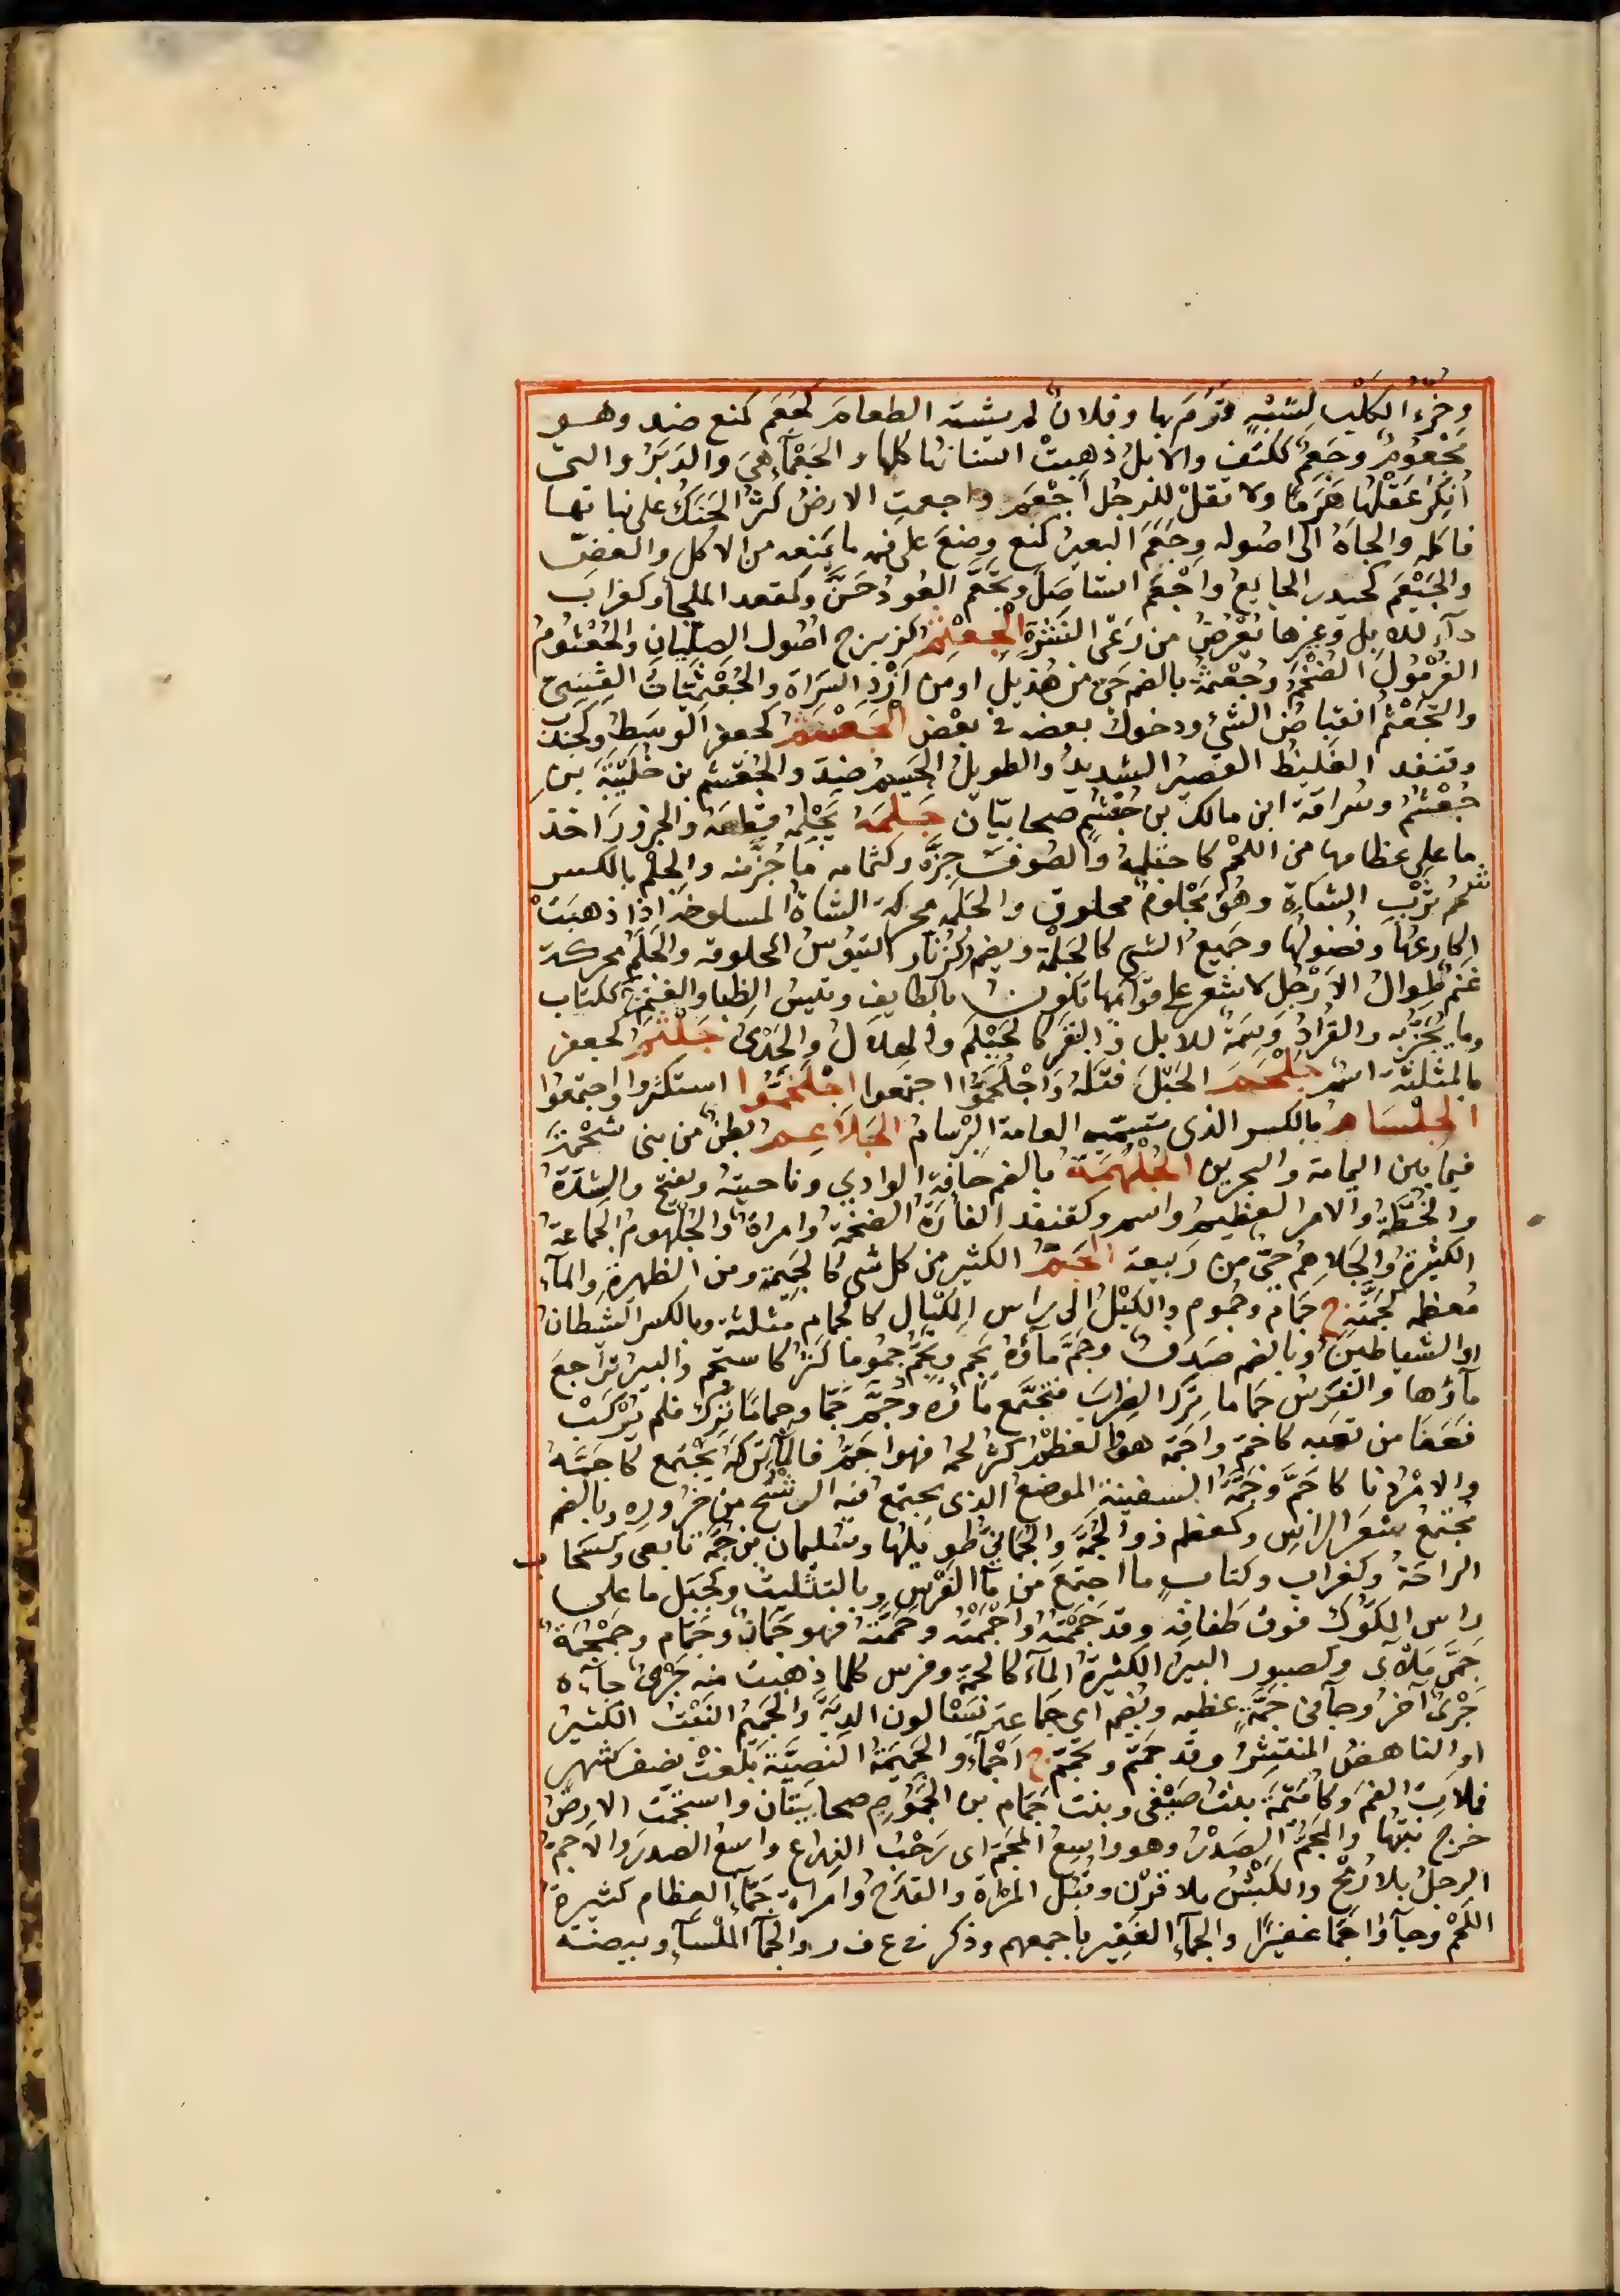 وخرء الكلب لشبه قرم بها وفلان لم يشته الطعام كجعم كمنع ضد وهو
مجعوم وجعم ككتف والابل ذهبت اسنانها كلها والجعماء هي والدبر والتي
انكر عقلها هرما ولا تقل للرجل اجعم واجعمت الارض كثر الحنك على نباتها
فاكله والجاه الى اصوله وجعم البعير كمنع وضع على فمه ما يمنعه من الاكل والعض
والجيعم كحيدر الجايع واجعم استاصل وتجعم العود حن وكمقعد الملجا وكغراب
دآء للابل وغيرها يعرض من رعى النشر الجعثم كزبرج اصول الصليان والجعثوم
الغرمول الضخم وجعثمة بالضم حى من هذيل او من ازد السراة والجعثميات القسى
والتجعثم انقباض الشئ ودخول بعضه فى بعض الجعشم كجعفر الوسط وكجندب
وقنفذ الغليظ القصير الشديد والطويل الجسيم ضد والجعشم بن خليبة بن
جعشم وسراقة ابن مالك بن جعشم صحابيان جلمه يجلمه قطعه والجزور اخذ
ما على عظامها من اللحم كاجتلمه والصوف جزه وكثمامه ما جز منه والجلم بالكسر
شحم ثرب الشاة وهو مجلوم محلوق والجلمه محركة الشاة المسلوخة اذا ذهبت
اكارعها وفضولها وجميع الشى كالجلمة ويضم وكزنار التيوس المحلوقه والجلم محركة
غنم طوال الارجل لا شعر على قوائمها تكون بالطايف وتيس الظبا والغنم ج ككتاب
وما يجز به والقراد وسمة للابل والقمر كالجيلم والهلال والجدى جلثم كجعفر
بالمثلثة اسم جلحم الحبل فتله واجلحموا اجتمعوا اجلخموا استكثروا واجتمعوا
الجلسام بالكسر الذى تسميه العامة البرسام الجلاعم بطن من بنى سحمة
فيما بين اليمامة والبحرين الجلهمة بالضم حافة الوادي وناحيته ويفتح والشدة
والخطة والامر العظيم واسم وكقنفذ الفارة الضخمة وامراة والجلهوم الجماعة
الكثيرة والجلاهم حى من ربيعة الجم الكثير من كل شى كالجميم ومن الظهيرة والمآء
معظمه كجمته ج جمام وجموم والكيل الى راس المكيال كالجمام مثلثة وبالكسر الشيطان
او الشياطين وبالضم صدف وجم ماؤه يجم ويجم جموما كثر كاستجم والبير تراجع
مآؤها والفرس جماما ترك الضراب فتجمع ماؤه وجم جما وجماما ترك فلم يركب
فعفا من تعبه كاجم واجمه هو والعظم كثر لحمه فهو اجم فالمآء تركه يجتمع كاجمه
والامر دنا كاجم وجمة السفينة الموضع الذى يجتمع فيه الرشح من خروزه وبالضم
مجتمع شعر الراس وكمعظم ذو الجمة والجمانى طويلها وسليمان بن جمة تابعى وكسحاب
الراحة وكغراب وكتاب ما اجتمع من مآء الفرس وبالتثليث وكجبل ما على
راس المكوك فوق طفافه وقد جممته واجممته وجممته فهو جمان وجمام وجمجمة
جمى ملآى وكصبور البير الكثيرة المآء كالجمة وفرس كلما ذهبت منه جرى جآءه
جرى آخر وجآء فى جمة عظيمه ويضم اى جماعة يسالون الدية والجميم النبت الكثير
او الناهض المنتشر وقد جمم وتجمم ج اجمآء والجميمة النصية بلغت نصف شهر
فملات الفم وكامتمة بنت صيفى وبنت جمام بن الجموح صحابيتان واستجمت الارض
خرج نبتها والمجم الصدر وهو واسع المجم اى رحب الذراع واسع الصدر والاجم
الرجل بلا رمح والكبش بلا قرن وقبل المراة والقدح وامراة جمآء العظام كثيرة
اللحم وجآؤا جما غفيرا والجمآء الغفير باجمعهم وذكر فى غ ف ر والجمآء الملسآء وبيضة